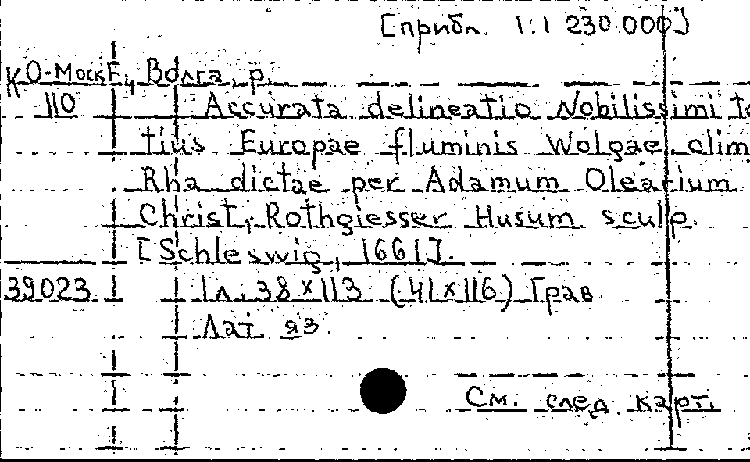 [прибл. 1:1 230 000]
КО-Моск Е, Волга, р.
110 Accurata delineatio Nobilissimi to
tius Europae fluminis Wolgae olim
Rha dictae per Adamum Olearium
Christ. Rothgiesser Husum sculp.
[Schleswig, 1661].
39023 1 л. 38×113 (41×116) Грав
Лат. яз.
См. след. карт.